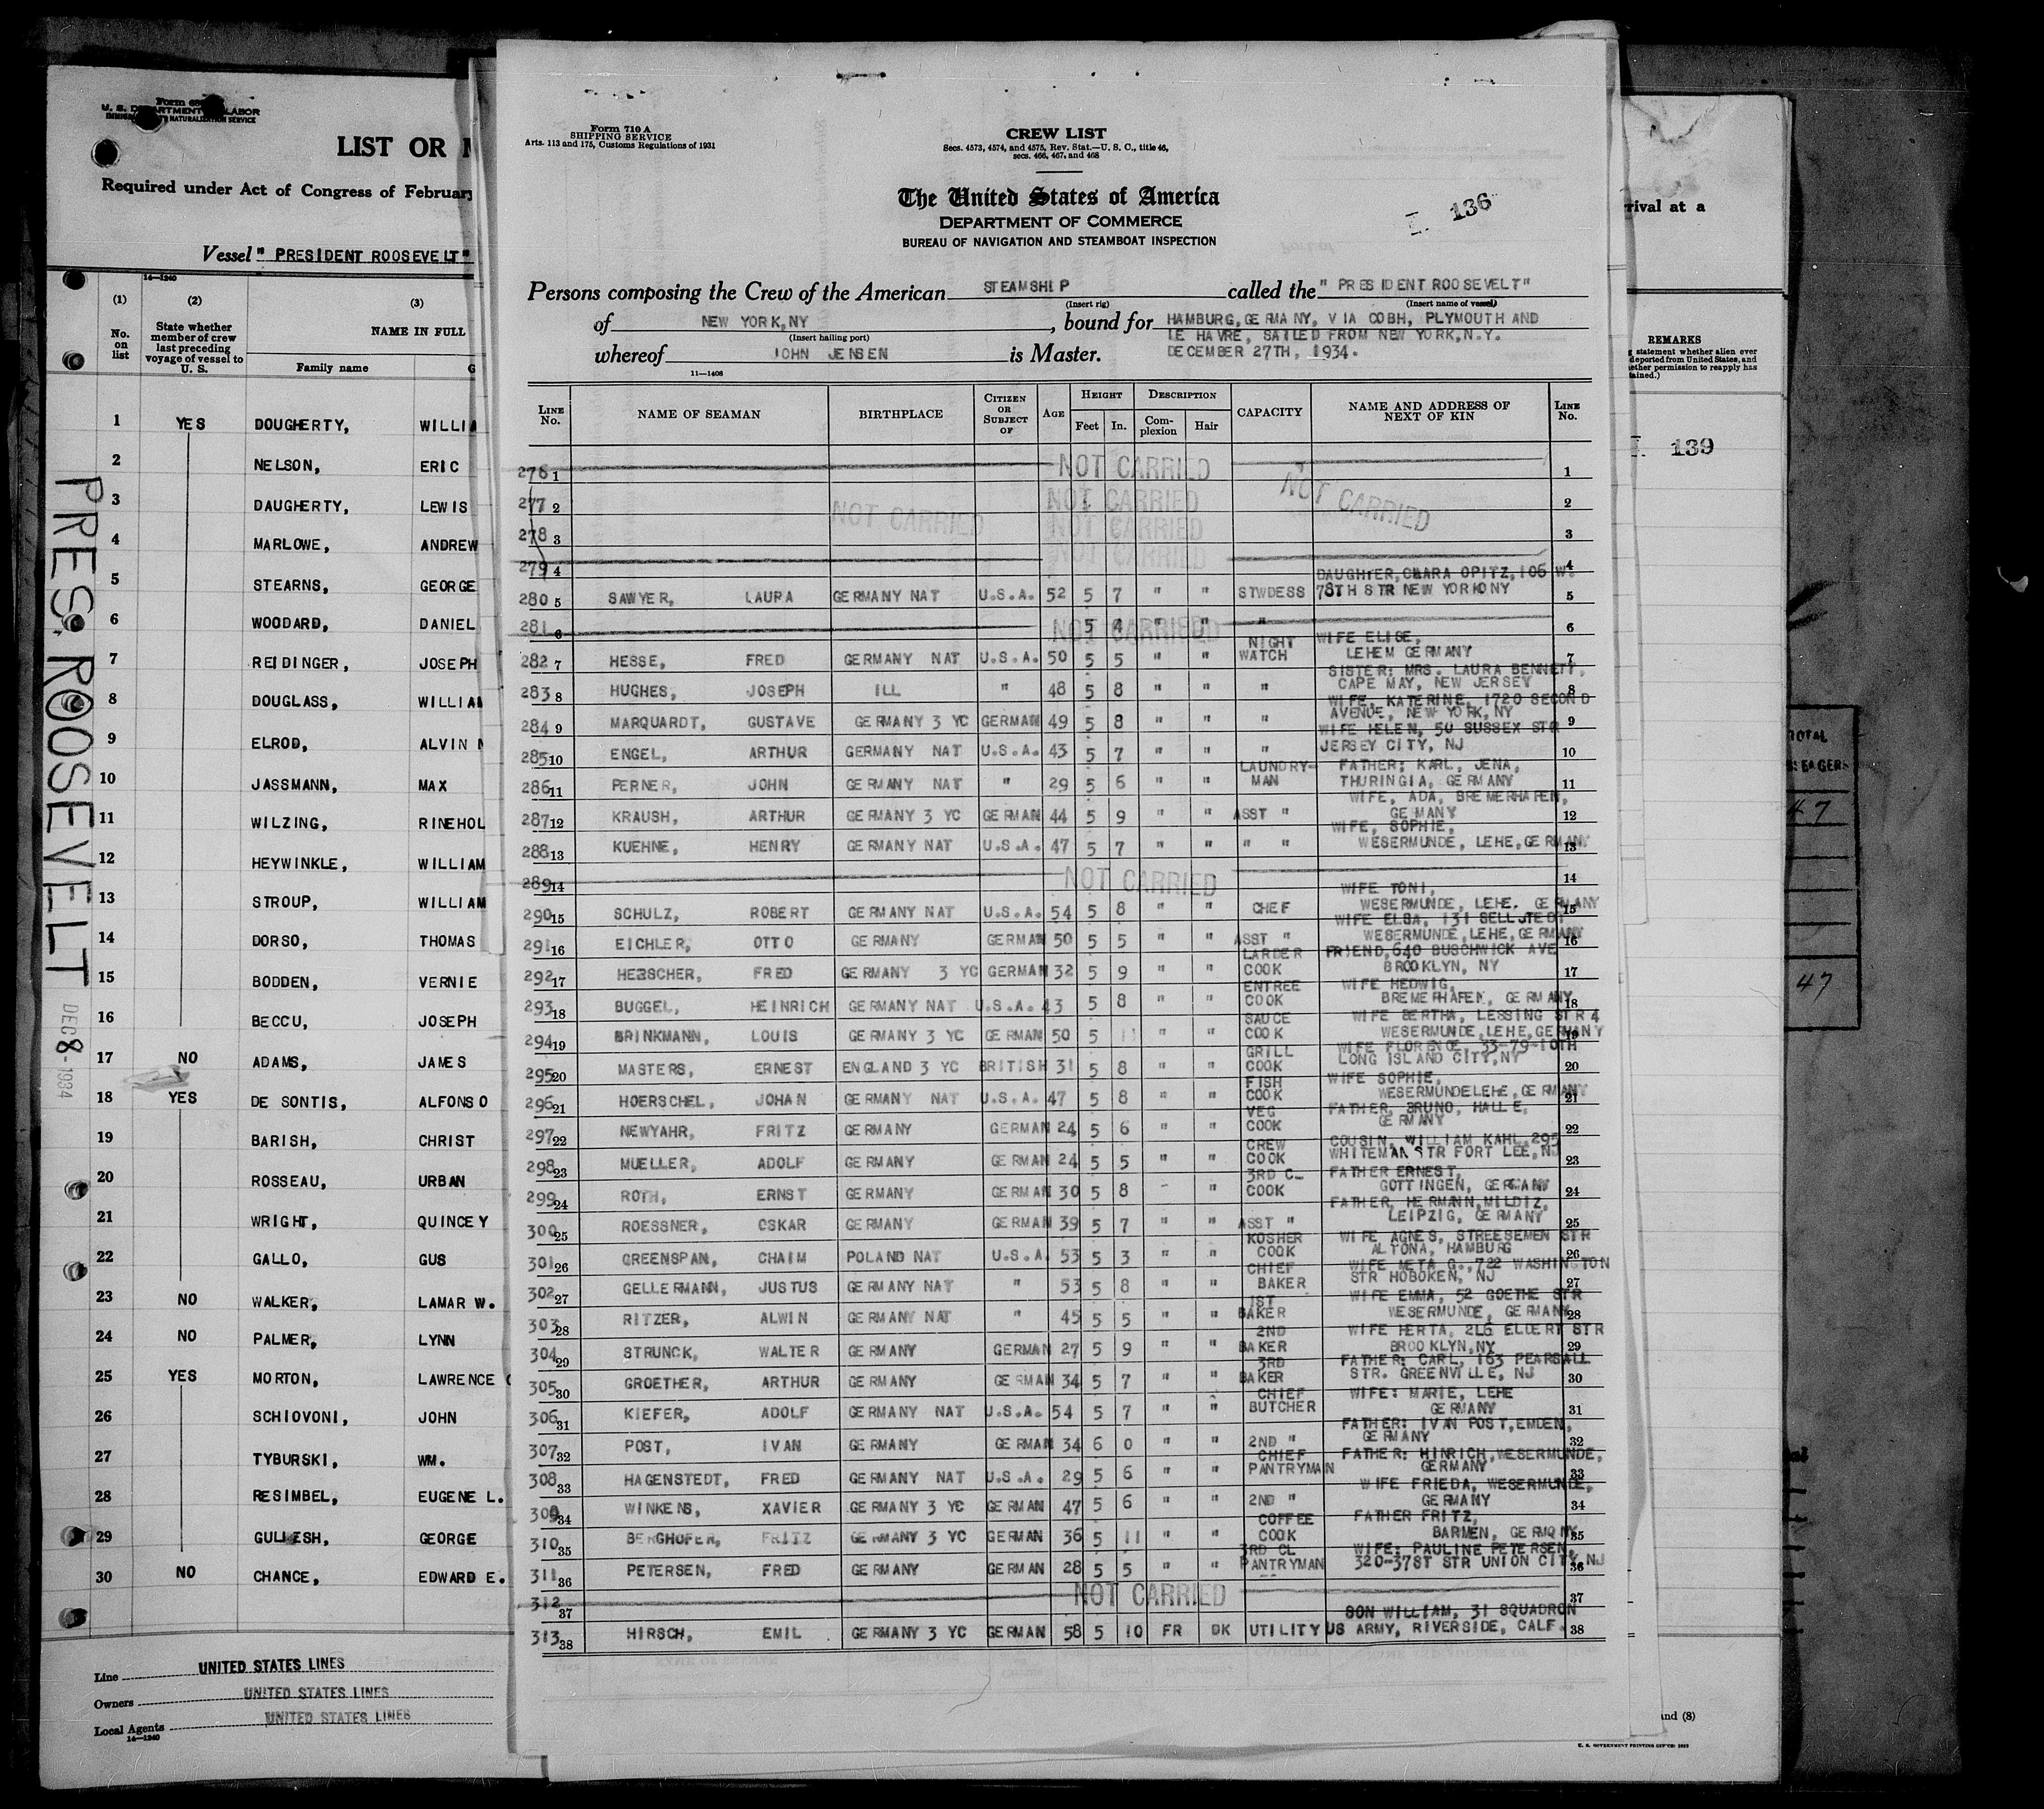 U. S. DEPARTMENT LABOR
LIST OR
Required under Act of Congress of February
Vessel "PRESIDENT ROOSEVELT"
14—1240
(1) (2) (3)
No. on list
State whether member of crew last preceding voyage of vessel to U. S.
NAME IN FULL
Family name
1 YES DOUGHERTY, WILLIA
2 NELSON, ERIC
3 DAUGHERTY, LEWIS
4 MARLOWE, ANDREW
5 STEARNS, GEORGE
6 WOODARD, DANIEL
7 REIDINGER, JOSEPH
8 DOUGLASS, WILLIAM
9 ELROD, ALVIN
10 JASSMANN, MAX
11 WILZING, RINEHOL
12 HEYWINKLE, WILLIAM
13 STROUP, WILLIAM
14 DORSO, THOMAS
15 BODDEN, VERNIE
16 BECCU, JOSEPH
17 NO ADAMS, JAMES
18 YES DE SONTIS, ALFONSO
19 BARISH, CHRIST
20 ROSSEAU, URBAN
21 WRIGHT, QUINCEY
22 GALLO, GUS
23 NO WALKER, LAMAR W.
24 NO PALMER, LYNN
25 YES MORTON, LAWRENCE
26 SCHIOVONI, JOHN
27 TYBURSKI, WM.
28 RESIMBEL, EUGENE L.
29 GULLESH, GEORGE
30 NO CHANCE, EDWARD E.
PRES. ROOSEVELT
DEC 8-1934
Line UNITED STATES LINES
Owners UNITED STATES LINES
Local Agents UNITED STATES LINES
14—1240
Form 710 A
SHIPPING SERVICE
Arts. 113 and 175, Customs Regulations of 1931
CREW LIST
Secs. 4573, 4574, and 4575, Rev. Stat.—U. S. C., title 46,
secs. 466, 467, and 468
The United States of America
DEPARTMENT OF COMMERCE
BUREAU OF NAVIGATION AND STEAMBOAT INSPECTION
136
Persons composing the Crew of the American STEAMSHIP called the "PRESIDENT ROOSEVELT"
(Insert rig) (Insert name of vessel)
of NEW YORK,NY, bound for HAMBURG,GERMANY, VIA COBH, PLYMOUTH AND
(Insert hailing port) LE HAVRE, SAILED FROM NEW YORK,N.Y.
whereof JOHN JENSEN is Master. DECEMBER 27TH, 1934.
11—1408
LINE No. NAME OF SEAMAN BIRTHPLACE CITIZEN OR SUBJECT OF AGE HEIGHT Feet In. DESCRIPTION Complexion Hair CAPACITY NAME AND ADDRESS OF NEXT OF KIN LINE No.
276 1 NOT CARRIED 1
277 2 NOT CARRIED NOT CARRIED 2
278 3 NOT CARRIED NOT CARRIED 3
279 4 NOT CARRIED 4
280 5 SAWYER, LAURA GERMANY NAT U.S.A. 52 5 7 " " STWDESS DAUGHTER, CLARA OPITZ, 106 W. 78TH STR NEW YORK NY 5
281 6 NOT CARRIED 5 4 " " " 6
282 7 HESSE, FRED GERMANY NAT U.S.A. 50 5 5 " " NIGHT WATCH WIFE ELISE, LEHEM GERMANY 7
283 8 HUGHES, JOSEPH ILL " 48 5 8 " " " SISTER: MRS. LAURA BENNETT, CAPE MAY, NEW JERSEY 8
284 9 MARQUARDT, GUSTAVE GERMANY 3 YC GERMAN 49 5 8 " " " WIFE, KATERINE, 1720 SECOND AVENUE, NEW YORK, NY 9
285 10 ENGEL, ARTHUR GERMANY NAT U.S.A. 43 5 7 " " " WIFE HELEN, 50 SUSSEX STR JERSEY CITY, NJ 10
286 11 PERNER, JOHN GERMANY NAT " 29 5 6 " " LAUNDRY-MAN FATHER; KARL, JENA, THURINGIA, GERMANY 11
287 12 KRAUSH, ARTHUR GERMANY 3 YC GERMAN 44 5 9 " " ASST " WIFE, ADA, BREMERHAFEN, GEMANY 12
288 13 KUEHNE, HENRY GERMANY NAT U.S.A. 47 5 7 " " " " WIFE, SOPHIE, WESERMUNDE, LEHE, GERMANY 13
289 14 NOT CARRIED 14
290 15 SCHULZ, ROBERT GERMANY NAT U.S.A. 54 5 8 " " CHEF WIFE TONI, WESERMUNDE, LEHE. GERMANY 15
291 16 EICHLER, OTTO GERMANY GERMAN 50 5 5 " " ASST " WIFE ELSA, 131 WESERMUNDE, LEHE, GERMANY 16
292 17 HERSCHER, FRED GERMANY 3 YC GERMAN 32 5 9 " " LARDER COOK FRIEND, 640 BUSCHWICK AVE BROOKLYN, NY 17
293 18 BUGGEL, HEINRICH GERMANY NAT U.S.A. 43 5 8 " " ENTREE COOK WIFE HEDWIG, BREMERHAFEN, GERMANY 18
294 19 BRINKMANN, LOUIS GERMANY 3 YC GERMAN 50 5 11 " " SAUCE COOK WIFE BERTHA, LESSING STR 4 WESERMUNDE, LEHE, GERMANY 19
295 20 MASTERS, ERNEST ENGLAND 3 YC BRITISH 31 5 8 " " GRILL COOK WIFE FLORENCE, 33-79-10TH LONG ISLAND CITY, NY 20
296 21 HOERSCHEL, JOHAN GERMANY NAT U.S.A. 47 5 8 " " FISH COOK WIFE SOPHIE, WESERMUNDELEHE, GERMANY 21
297 22 NEWYAHR, FRITZ GERMANY GERMAN 24 5 6 " " VEG COOK FATHER, BRUNO, HALLE, GERMANY 22
298 23 MUELLER, ADOLF GERMANY GERMAN 24 5 5 " " CREW COOK COUSIN, WILLIAM KAHL, 295 WHITEMAN STR FORT LEE, NJ 23
299 24 ROTH, ERNST GERMANY GERMAN 30 5 8 " " 3RD C. COOK FATHER ERNEST, GOTTINGEN, GERMANY 24
300 25 ROESSNER, OSKAR GERMANY GERMAN 39 5 7 " " ASST " FATHER, HERMANN, MILDIZ, LEIPZIG, GERMANY 25
301 26 GREENSPAN, CHAIM POLAND NAT U.S.A. 53 5 3 " " KOSHER COOK WIFE AGNES, STREESEMEN STR ALTONA, HAMBURG 26
302 27 GELLERMANN, JUSTUS GERMANY NAT " 53 5 8 " " CHIEF BAKER WIFE META G., 722 WASHINGTON STR HOBOKEN, NJ 27
303 28 RITZER, ALWIN GERMANY NAT " 45 5 5 " " 1ST BAKER WIFE EMMA, 52 GOETHE STR WESERMUNDE, GERMANY 28
304 29 STRUNCK, WALTER GERMANY GERMAN 27 5 9 " " 2ND BAKER WIFE HERTA, 216 ELDERT STR BROOKLYN, NY 29
305 30 GROETHER, ARTHUR GERMANY GERMAN 34 5 7 " " 3RD BAKER FATHER: CARL, 163 PEARSALL STR. GREENVILLE, NJ 30
306 31 KIEFER, ADOLF GERMANY NAT U.S.A. 54 5 7 " " CHIEF BUTCHER WIFE: MARIE, LEHE GERMANY 31
307 32 POST, IVAN GERMANY GERMAN 34 6 0 " " 2ND " FATHER: IVAN POST, EMDEN, GERMANY 32
308 33 HAGENSTEDT, FRED GERMANY NAT U.S.A. 29 5 6 " " CHIEF PANTRYMAN FATHER: HINRICH, WESERMUNDE, GERMANY 33
309 34 WINKENS, XAVIER GERMANY 3 YC GERMAN 47 5 6 " " 2ND " WIFE FRIEDA, WESERMUNDE, GERMANY 34
310 35 BERGHOFER, FRITZ GERMANY 3 YC GERMAN 36 5 11 " " COFFEE COOK FATHER FRITZ, BARMEN, GERMQNY 35
311 36 PETERSEN, FRED GERMANY GERMAN 28 5 5 " " 3RD CL PANTRYMAN WIFE: PAULINE PETERSEN, 320-37ST STR UNION CITY, NJ 36
312 37 NOT CARRIED 37
313 38 HIRSCH, EMIL GERMANY 3 YC GERMAN 58 5 10 FR DK UTILITY SON WILLIAM, 31 SQUADRON US ARMY, RIVERSIDE, CALF. 38
rival at a
REMARKS
statement whether alien ever
deported from United States, and
ether permission to reapply has
tained.)
139
TOTAL
47
47
and (8)
U. S. GOVERNMENT PRINTING OFFICE